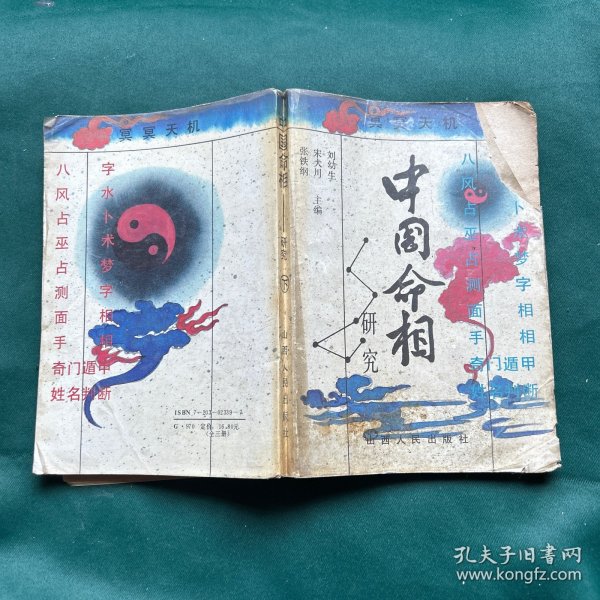 冥冥天机
八字
风水
占卜
巫术
占梦
测字
面相
手相
奇门遁甲
姓名判断
ISBN 7—203—02339—X
G·970 定价: 16.80元
(全三册)
中国命相——研究 下
山西人民出版社
冥冥天机
刘幼生
宋大川
张铁纲
主编
中国命相
研究
八
风
占卜
巫术
占梦
测字
面相
手相
奇门遁甲
断
山西人民出版社
孔夫子旧书网
www.kongfz.com